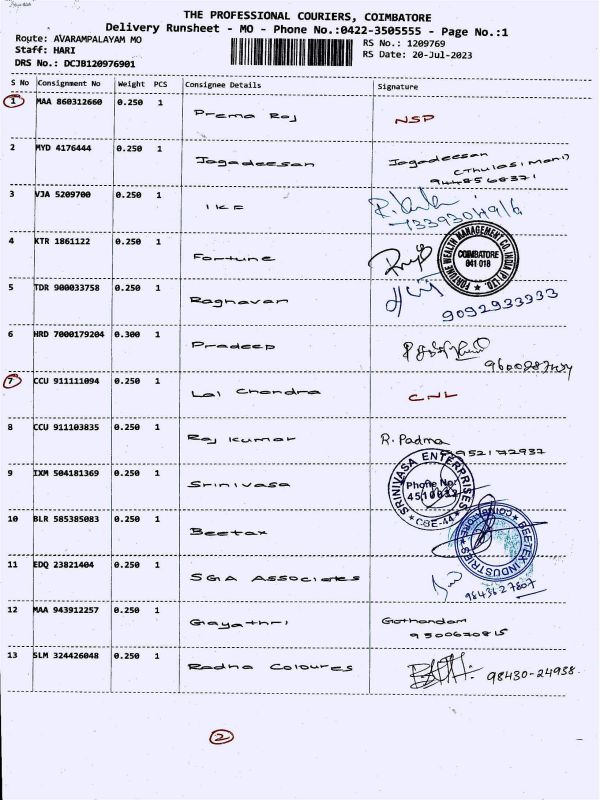 THE PROFESSIONAL COURIERS, COIMBATORE
Delivery Runsheet - MO - Phone No.:0422-3505555 - Page No.:1
Route: AVARAMPALAYAM MO
RS No.: 1209769
Staff: HARI
RS Date: 20-Jul-2023
DRS No.: DCJB120976901
S No Consignment No Weight PCS Consignee Details Signature
1 MAA 860312660 0.250 1 Prema Raj NSP
2 MYD 4176444 0.250 1 Jagadeesan Jagadeesan
3 VJA 5209700 0.250 1 IKF
4 KTR 1861122 0.250 1 Fortune
FORTUNE WEALTH MANAGEMENT CO. INDIA (P) LTD.
COIMBATORE
641 018
5 TDR 900033758 0.250 1 Raghavan
9092933933
6 HRD 7000179204 0.300 1 Pradeep
7 CCU 911111094 0.250 1 Lal Chandra CNL
8 CCU 911103835 0.250 1 Raj Kumar R. Padma
9952172937
9 IXM 504181369 0.250 1 Srinivasa
SRINIVASA ENTERPRISES
Phone No:
CBE-44
10 BLR 585385083 0.250 1 Beetax
BEETEX INDUSTRIES
COIMBATORE
11 EDQ 23821404 0.250 1 SGA Associates
9843627807
12 MAA 943912257 0.250 1 Gayathri Gothandam
9500670815
13 SLM 324426048 0.250 1 Radha Colours 98430-24938
2